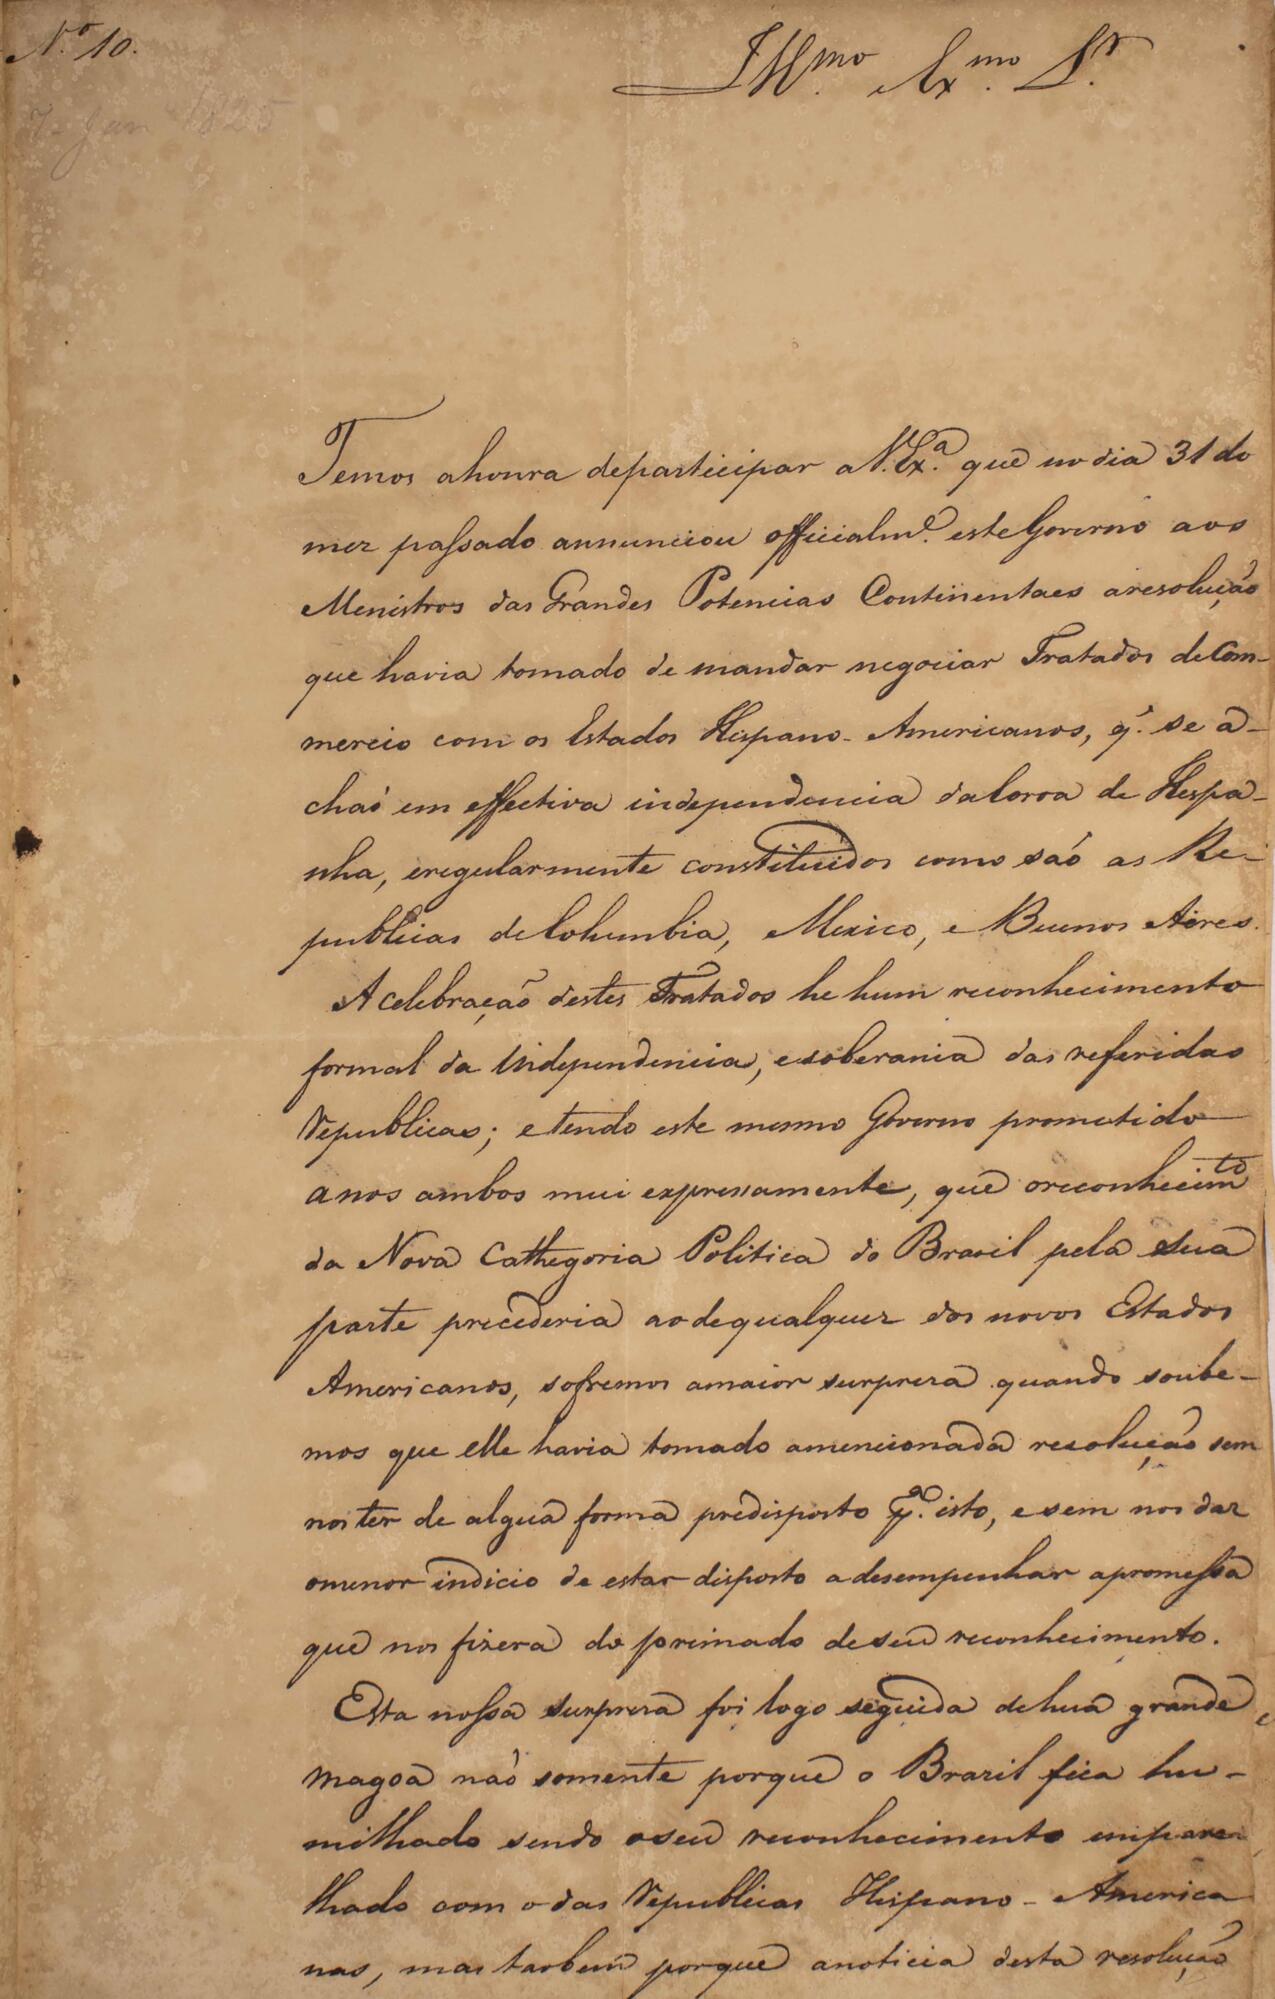 N.º 10.
Illmo. Exmo. Sr.
7 Jan 1825
Temos ahonra departicipar a V. Exª. que no dia 31 do
mez passado annunciou officialmᵉ. este Governo aos
Ministros das Grandes Potencias Continentaes aresolução
que havia tomado de mandar negociar Tratados de Com-
mercio com os Estados Hispano-Americanos, q̃. se a-
chaõ em effectiva independencia da Coroa de Hespa-
nha, eregularmente constituidos como saõ as Re-
publicas de Columbia, Mexico, e Buenos Aires.
A celebraçaõ destes Tratados he hum reconhecimento
formal da Independencia, esoberania das referidas
Republicas; e tendo este mesmo Governo promettido
anos ambos mui expressamente, que oreconhecimᵗᵒ
da Nova Cathegoria Politica do Brasil pela sua
parte precederia ao dequalquer dos novos Estados
Americanos, sofremos amaior surpreza quando soube-
mos que elle havia tomado amencionada resolução sem
nos ter de algũa forma predisposto pª. isto, e sem nos dar
omenor indicio de estar disposto adesempenhar apromessa
que nos fizera do primado de seu reconhecimento.
Esta nossa surpreza foi logo seguida de huã grande
magoa naõ somente porque o Brazil fica hu-
milhado sendo oseu reconhecimento empare-
lhado com o das Republicas Hispano-America
nas, mas taobem porque anoticia desta resolução